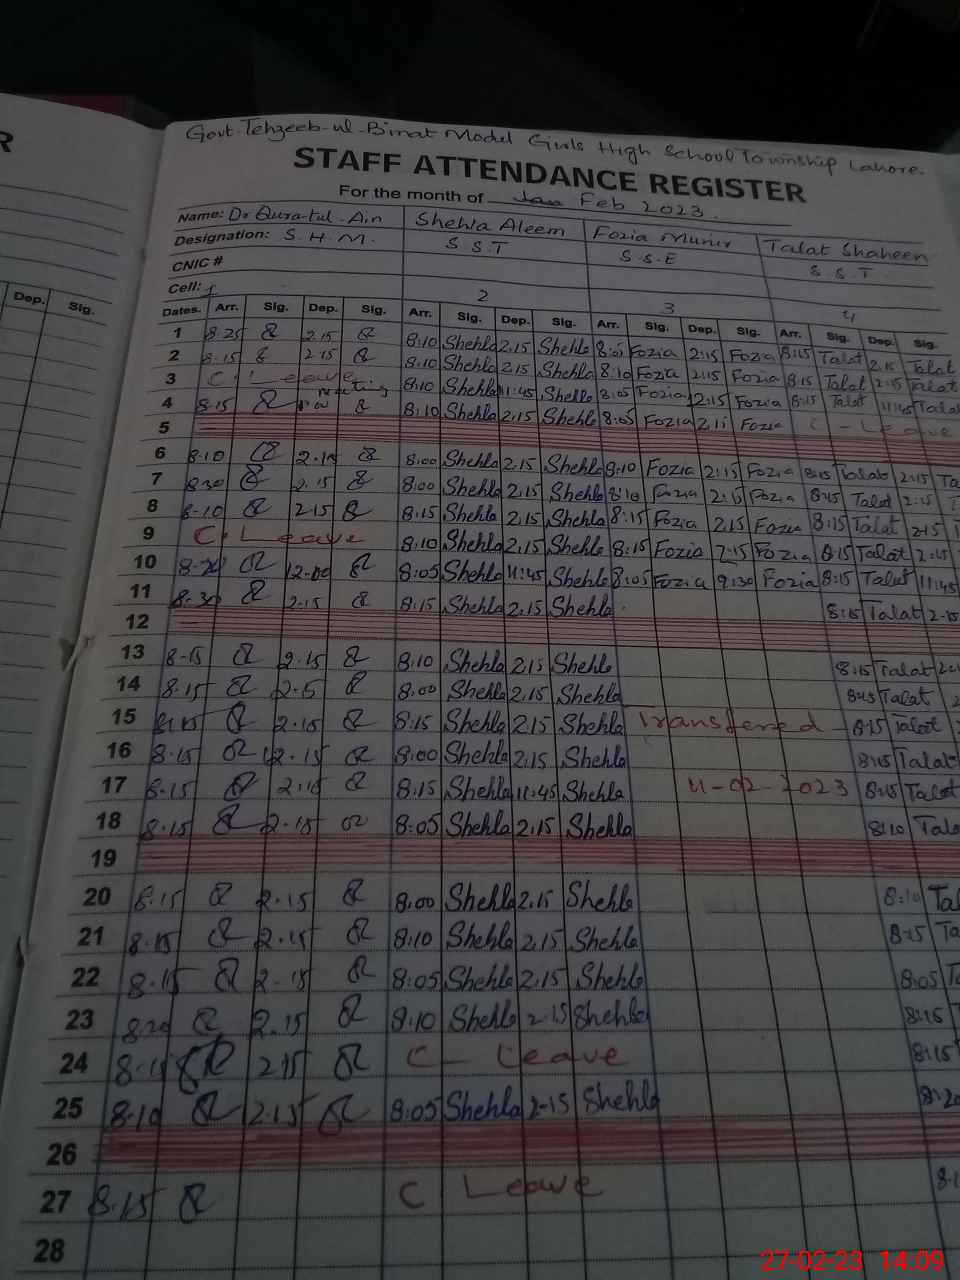 R
Dep. Sig.
Govt. Tehzeeb-ul-Binat Model Girls High School Township Lahore.
STAFF ATTENDANCE REGISTER
For the month of Feb 2023.
Name: Dr Qura-tul-Ain Shehla Aleem Fozia Munir Talat Shaheen
Designation: S.H.M. S.S.T S.S.E S.S.T
CNIC #
Cell: 1 2 3 4
Dates. Arr. Sig. Dep. Sig. Arr. Sig. Dep. Sig. Arr. Sig. Dep. Sig. Arr. Sig. Dep. Sig.
1 8.25 2.15 8:10 Shehla 2.15 Shehla 8:05 Fozia 2:15 Fozia 8:15 Talat 2.15 Talat
2 8.15 2.15 8:10 Shehla 2.15 Shehla 8:10 Fozia 2:15 Fozia 8:15 Talat 2:15 Talat
3 C. Leave 8:10 Shehla 11:45 Shehla 8:05 Fozia 12:15 Fozia 8:15 Talat 11:45 Talat
4 8.15 Meeting 8:10 Shehla 2.15 Shehla 8:05 Fozia 2:15 Fozia C - Leave
5
6 8.10 2.15 8:00 Shehla 2.15 Shehla 8:10 Fozia 2:15 Fozia 8:15 Talat 2:15 Ta
7 8.30 2.15 8:00 Shehla 2.15 Shehla 8:10 Fozia 2:15 Fozia 8:15 Talat 2:15 T
8 8.10 2.15 8:15 Shehla 2.15 Shehla 8:15 Fozia 2.15 Fozia 8:15 Talat 2:15
9 C. Leave 8:10 Shehla 2.15 Shehla 8:15 Fozia 2:15 Fozia 8:15 Talat 2:15
10 8.20 12.00 8:05 Shehla 11:45 Shehla 8:05 Fozia 9:30 Fozia 8:15 Talat 11:45
11 8.30 2.15 8:15 Shehla 2.15 Shehla 8:15 Talat 2.15
12
13 8.15 2.15 8:10 Shehla 2.15 Shehla 8:15 Talat
14 8.15 2.15 8:00 Shehla 2.15 Shehla 8:15 Talat
15 8.15 2.15 8:15 Shehla 2.15 Shehla Transferred 8:15 Talat
16 8.15 2.15 8:00 Shehla 2.15 Shehla 8:15 Talat
17 8.15 2.15 8:15 Shehla 11:45 Shehla 11-02-2023 8:15 Talat
18 8.15 2.15 8:05 Shehla 2.15 Shehla 8:10 Tala
19
20 8.15 2.15 8:00 Shehla 2.15 Shehla 8:10 Tal
21 8.15 2.15 8:10 Shehla 2.15 Shehla 8:15 Ta
22 8.15 2.15 8:05 Shehla 2.15 Shehla 8:05 Ta
23 8.20 2.15 8:10 Shehla 2.15 Shehla 8:15 T
24 8.15 2.15 C - Leave 8:15
25 8.10 2.15 8:05 Shehla 2-15 Shehla 8:20
26
27 8.15 C Leave 8:1
28
27-02-23 14:09